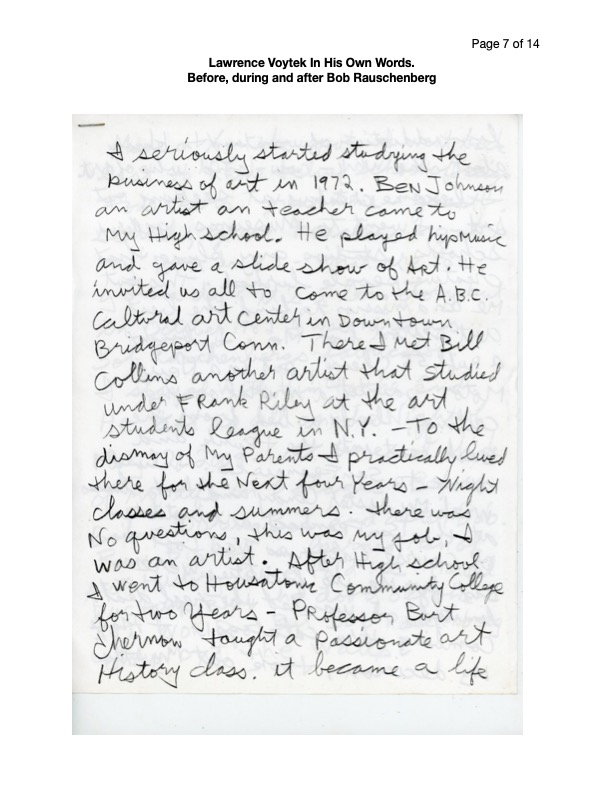 Page 7 of 14
Lawrence Voytek In His Own Words.
Before, during and after Bob Rauschenberg
I seriously started studying the
business of art in 1972. Ben Johnson
an artist an teacher came to
My High school. He played hip Music
and gave a slide show of Art. He
invited us all to come to the A.B.C.
Caltural art Center in Downtown
Bridgeport Conn. There I Met Bill
Collins another artist that studied
under Frank Riley at the art
students league in N.Y. - To the
dismay of My Parents I practically lived
there for the Next four Years - Night
classes and summers. there was
No questions, this was my job, I
was an artist. After High school
I went to Housatonic Community College
for two Years - Professor Burt
Chernow taught a Passionate art
History class. it became a life